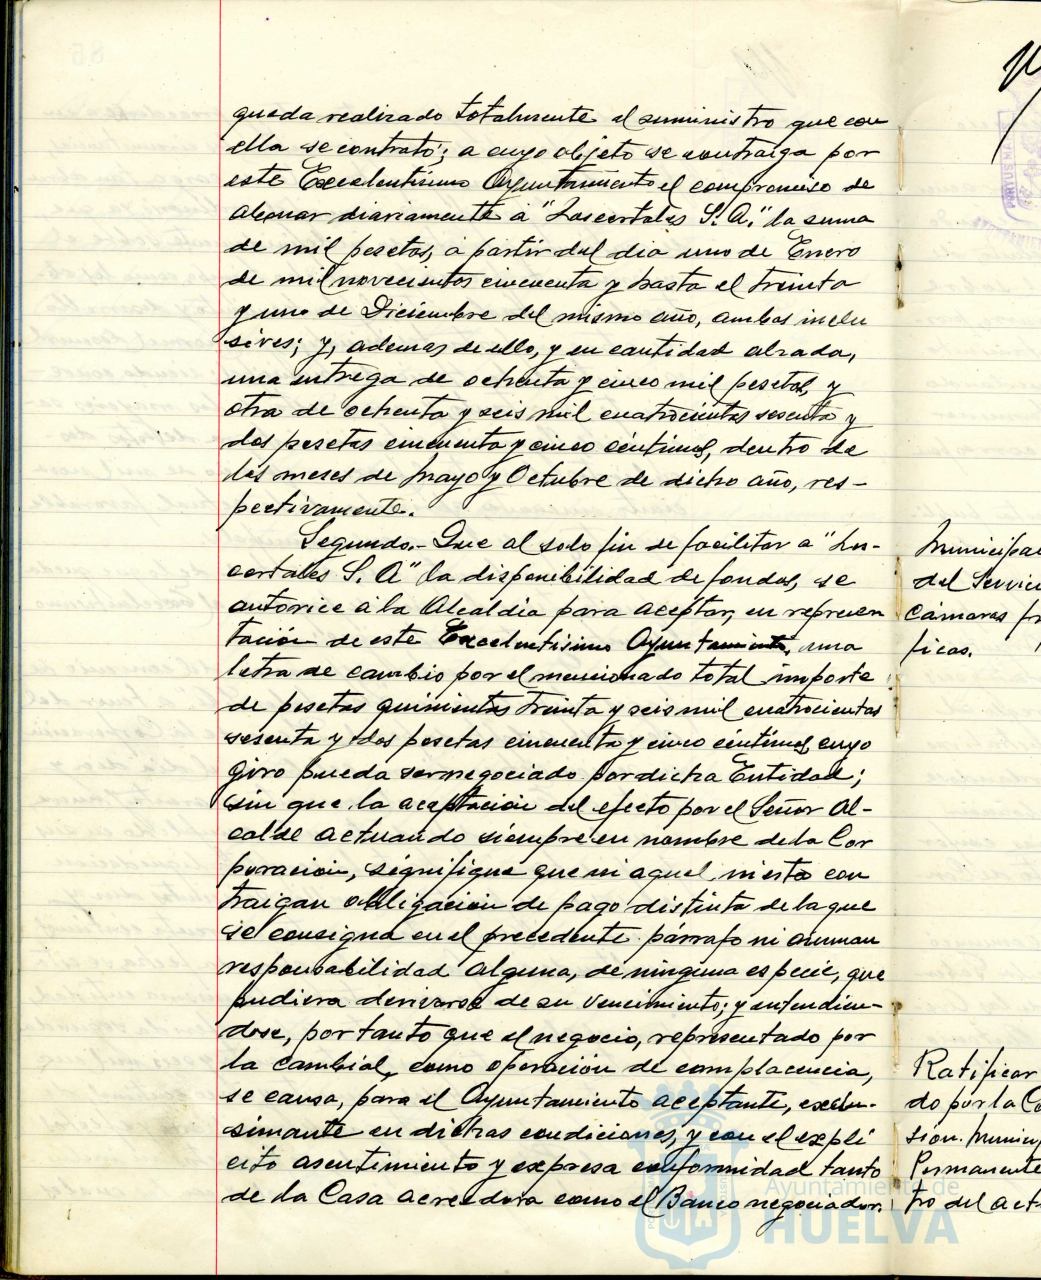 queda realizado totalmente el suministro que con
ella se contrató; a cuyo objeto se contraiga por
este Excelentísimo Ayuntamiento el compromiso de
abonar diariamente a "Loscertales S. A." la suma
de mil pesetas, a partir del dia uno de Enero
de mil novecientos cincuenta y hasta el treinta
y uno de Diciembre del mismo año, ambos inclu
sives; y, ademas de ello, y en cantidad alzada,
una entrega de ochenta y cinco mil pesetas, y
otra de ochenta y seis mil cuatrocientas sesenta y
dos pesetas cincuenta y cinco céntimos, dentro de
los meses de Mayo y Octubre de dicho año, res-
pectivamente.
Segundo.- Que al solo fin de facilitar a "Los-
certales S. A" la disponibilidad de fondos, se
autorice a la Alcaldia para aceptar, en represen
tación de este Excelentísimo Ayuntamiento, una
letra de cambio por el mencionado total importe
de pesetas quinientas treinta y seis mil cuatrocientas
sesenta y dos pesetas cincuenta y cinco céntimos, cuyo
giro pueda ser negociado por dicha Entidad;
sin que la aceptación del efecto por el Señor Al-
calde actuando siempre en nombre de la Cor
poración, signifique que ni aquel ni esta con
traigan obligación de pago distinta de la que
se consigna en el precedente párrafo ni asuman
responsabilidad alguna, de ninguna especie, que
pudiera derivarse de su vencimiento; y entendien-
dose, por tanto que el negocio, representado por
la cambial, como operación de complacencia,
se causa, para el Ayuntamiento aceptante, exclu-
simante en dichas condiciones, y con el explí
cito asentimiento y expresa conformidad tanto
de la Casa acreedora como el Banco negociador.
Municipa
del Servici
Cámaras fr
ficas.
Ratificar
do por la Co
sión Munici
Permanente
tro del act
Ayuntamiento de
HUELVA